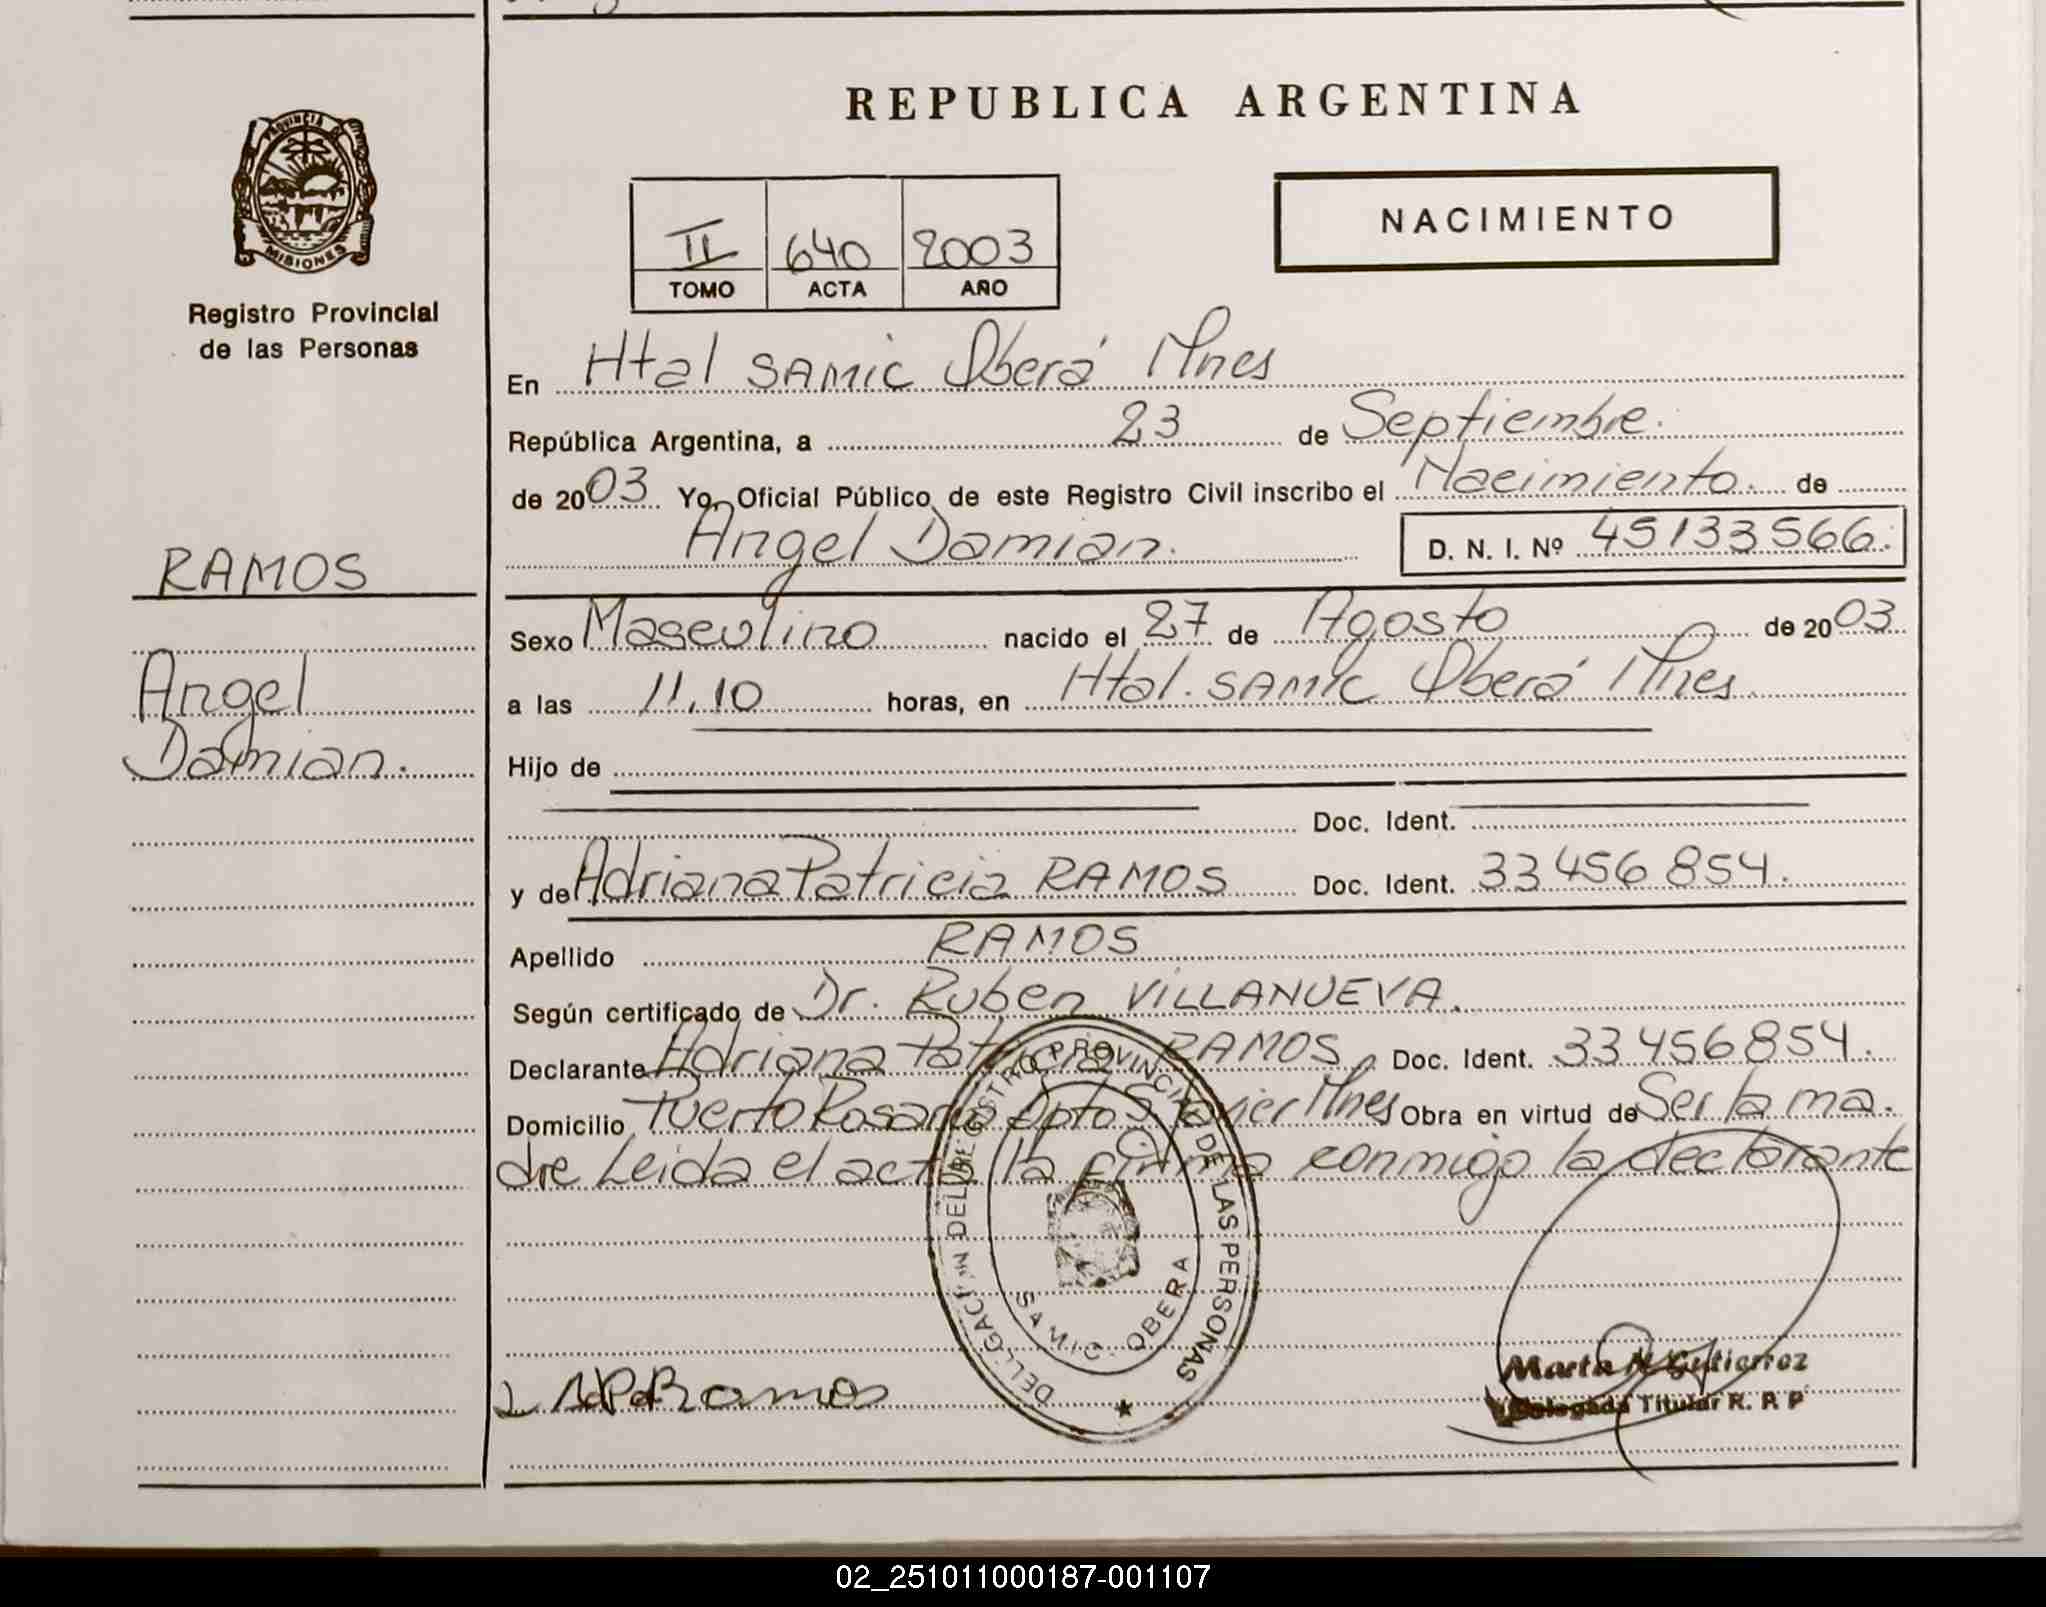 REPUBLICA ARGENTINA
PROVINCIA DE MISIONES
Registro Provincial
de las Personas
NACIMIENTO
II 640 2003
TOMO ACTA AÑO
En Htal SAMIC Oberá Mnes
República Argentina, a 23 de Septiembre.
de 2003. Yo, Oficial Público de este Registro Civil inscribo el Nacimiento. de
Angel Damian. D. N. I. Nº 45133566.
RAMOS
Angel
Damian.
Sexo Masculino nacido el 27 de Agosto de 2003
a las 11.10 horas, en Htal. SAMIC Oberá Mnes
Hijo de
Doc. Ident.
y de Adriana Patricia RAMOS Doc. Ident. 33456854.
Apellido RAMOS
Según certificado de Dr. Ruben VILLANUEVA.
Declarante Adriana Patricia RAMOS Doc. Ident. 33456854.
Domicilio Puerto Rosario Dpto S. Javier Mnes Obra en virtud de Ser la ma.
dre Leida el acta la firma conmigo la declarante
DELEGACION DEL REGISTRO PROVINCIAL DE LAS PERSONAS
SAMIC-OBERA
A.P.Ramos
Marta N Gutierrez
Delegada Titular R. P. P
02_251011000187-001107